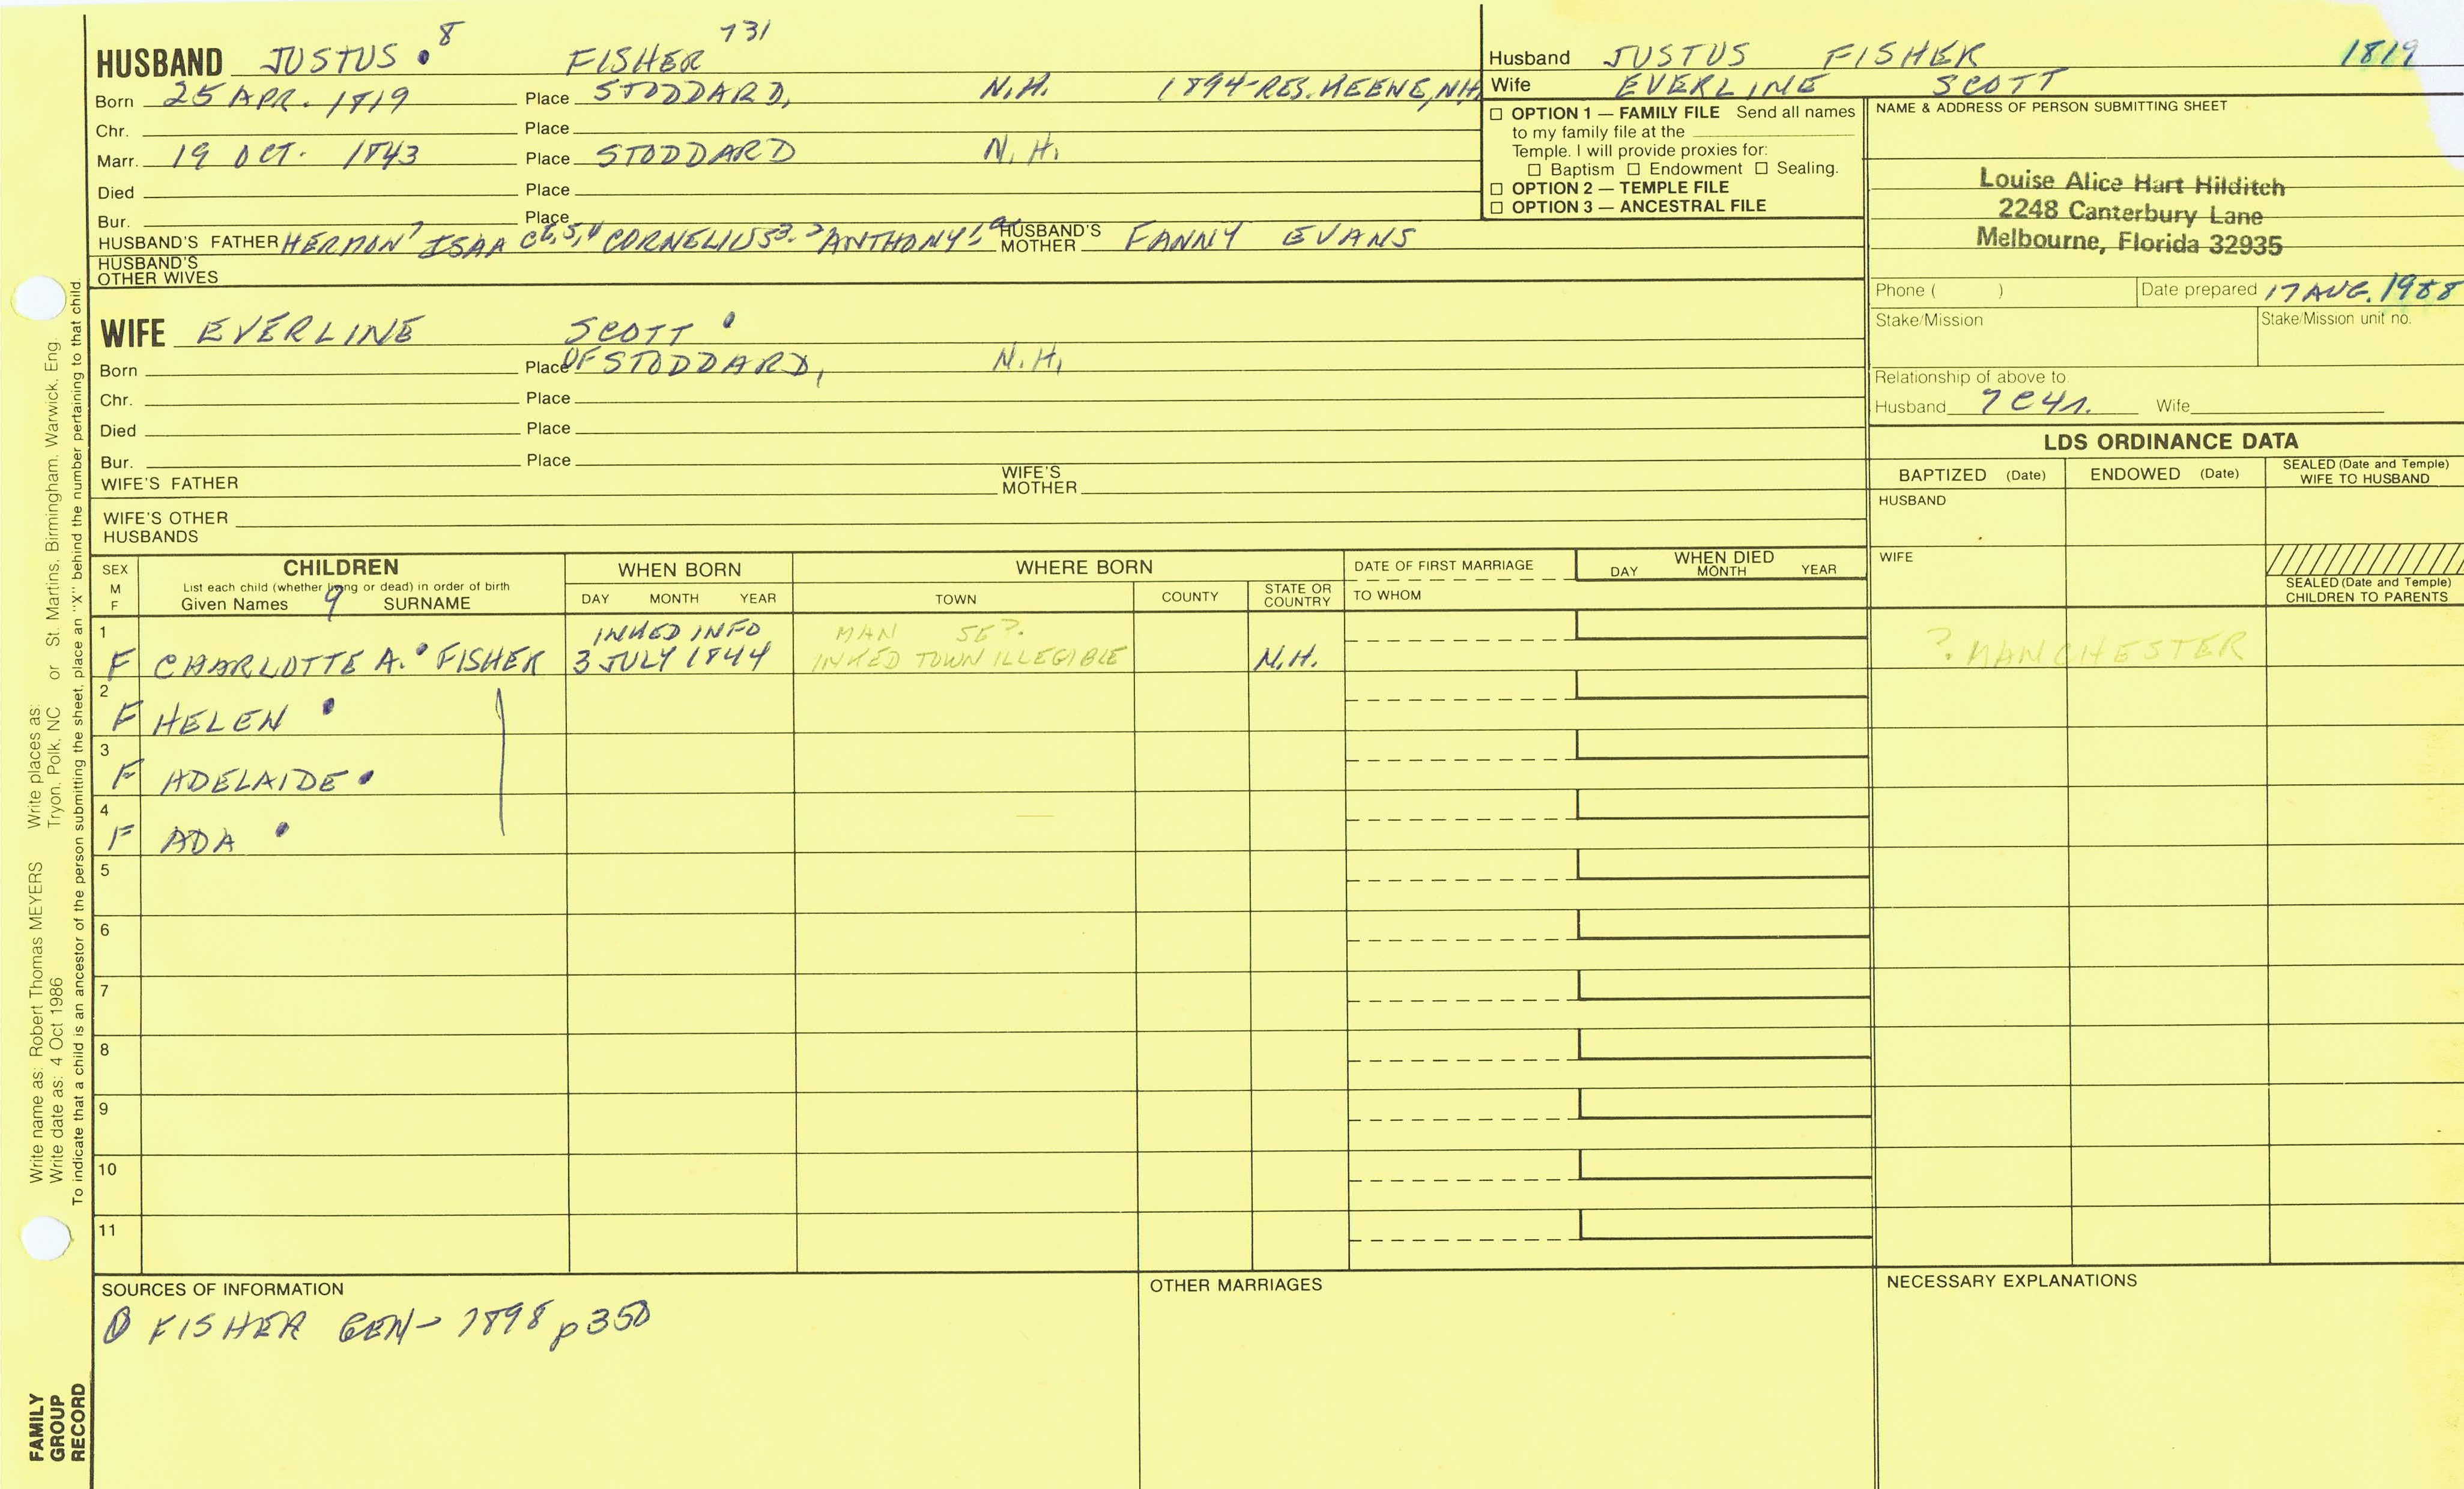 HUSBAND JUSTUS 8 FISHER 731
Born 25 APR. 1819 Place STODDARD, N.H. 1894-RES. KEENE, NH
Chr. Place
Marr. 19 OCT. 1843 Place STODDARD N.H.
Died Place
Bur. Place
HUSBAND'S FATHER HERMON 7 ISAAC 6,5,4 CORNELIUS 3,2 ANTHONY HUSBAND'S MOTHER FANNY EVANS
HUSBAND'S OTHER WIVES
WIFE EVERLINE SCOTT
Born Place OF STODDARD, N.H.
Chr. Place
Died Place
Bur. Place
WIFE'S FATHER WIFE'S MOTHER
WIFE'S OTHER HUSBANDS
Husband JUSTUS FISHER 1819
Wife EVERLINE SCOTT
OPTION 1 — FAMILY FILE Send all names
to my family file at the
Temple. I will provide proxies for:
Baptism Endowment Sealing.
OPTION 2 — TEMPLE FILE
OPTION 3 — ANCESTRAL FILE
NAME & ADDRESS OF PERSON SUBMITTING SHEET
Louise Alice Hart Hilditch
2248 Canterbury Lane
Melbourne, Florida 32935
Phone ( ) Date prepared 17 AUG. 1988
Stake/Mission Stake/Mission unit no.
Relationship of above to
Husband 7C4R. Wife
LDS ORDINANCE DATA
BAPTIZED (Date) ENDOWED (Date) SEALED (Date and Temple) WIFE TO HUSBAND
HUSBAND
WIFE
SEALED (Date and Temple) CHILDREN TO PARENTS
SEX M F
CHILDREN
List each child (whether living or dead) in order of birth
Given Names 9 SURNAME
WHEN BORN
DAY MONTH YEAR
WHERE BORN
TOWN COUNTY STATE OR COUNTRY
DATE OF FIRST MARRIAGE
TO WHOM
WHEN DIED
DAY MONTH YEAR
1 INKED INFO MAN SE?.
F CHARLOTTE A. FISHER 3 JULY 1844 INKED TOWN ILLEGIBLE N.H. ? MANCHESTER
2
F HELEN
3
F ADELAIDE
4
F ADA
5
6
7
8
9
10
11
SOURCES OF INFORMATION
① FISHER GEN- 1898 p350
OTHER MARRIAGES
NECESSARY EXPLANATIONS
Write name as: Robert Thomas MEYERS Write places as:
Write date as: 4 Oct 1986 Tryon, Polk, NC or St. Martins, Birmingham, Warwick, Eng
To indicate that a child is an ancestor of the person submitting the sheet, place an "X" behind the number pertaining to that child.
FAMILY
GROUP
RECORD